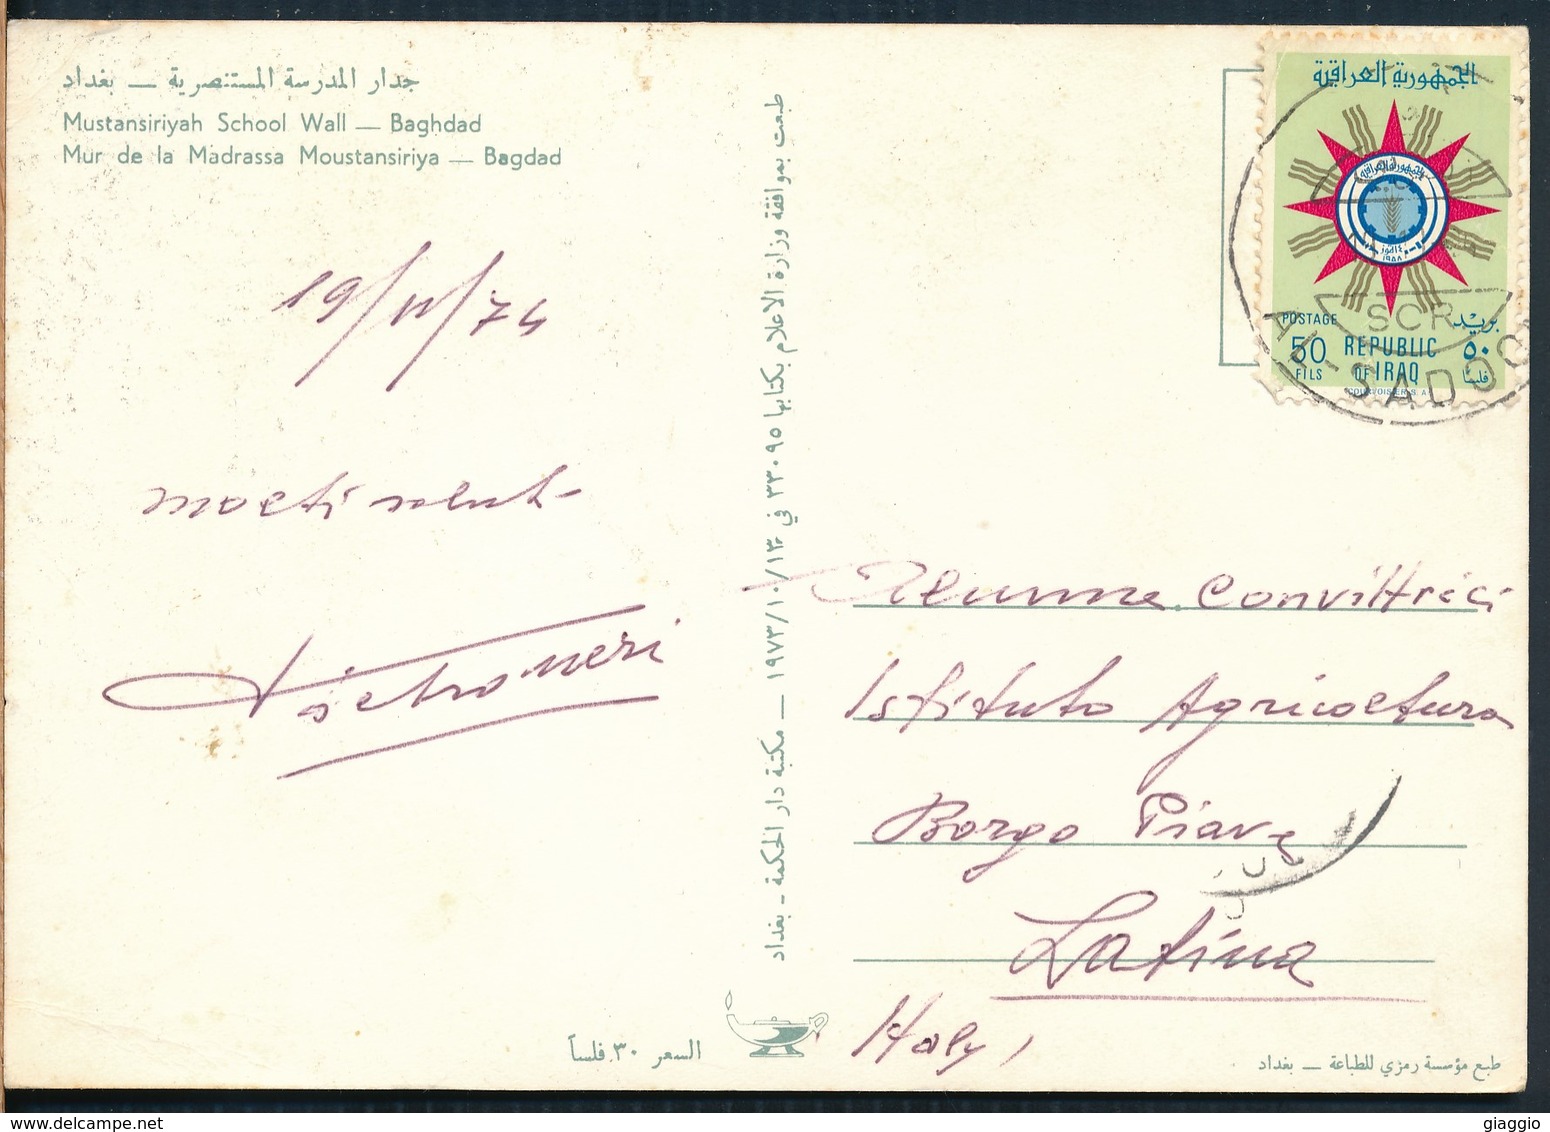 جدار المدرسة المستنصرية — بغداد
Mustansiriyah School Wall — Baghdad
Mur de la Madrassa Moustansiriya — Bagdad
19/11/74
molti salut
Pietro Neri
طبعت بموافقة وزارة الاعلام بكتابها ٣٣٠٩٥ في ١٩٧٣/١٠/١٣ — مكتبة دار الحكمة - بغداد
السعر ٣٠ فلساً
الجمهورية العراقية
الجمهورية العراقية
١٤ تموز
١٩٥٨
POSTAGE بريد
50 REPUBLIC ٥٠
FILS OF IRAQ فلسا
COURVOISIER S.A.
SCR
AL-SADOO
Alunne Convittrici
Istituto Agricoltura
Borgo Piave
Latina
Italy
طبع مؤسسة رمزي للطباعة — بغداد
giaggio